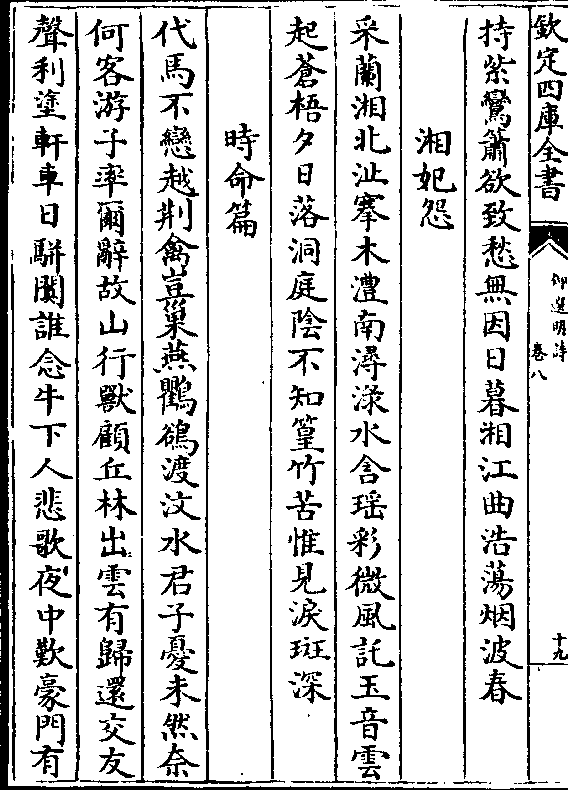 欽定四庫全書
御選明詩
卷八
十九
持紫鸞簫欲致愁無因日暮湘江曲浩蕩烟波春
湘妃怨
采蘭湘北沚搴木澧南潯淥水含瑶彩微風託玉音雲
起蒼梧夕日落洞庭陰不知篁竹苦惟見淚斑深
時命篇
代馬不戀越荆禽豈巢燕鸜鵒渡汶水君子憂未然奈
何客游子率爾辭故山行獸顧丘林出雲有歸還交友
聲利塗軒車日駢闐誰念牛下人悲歌夜中歎豪門有